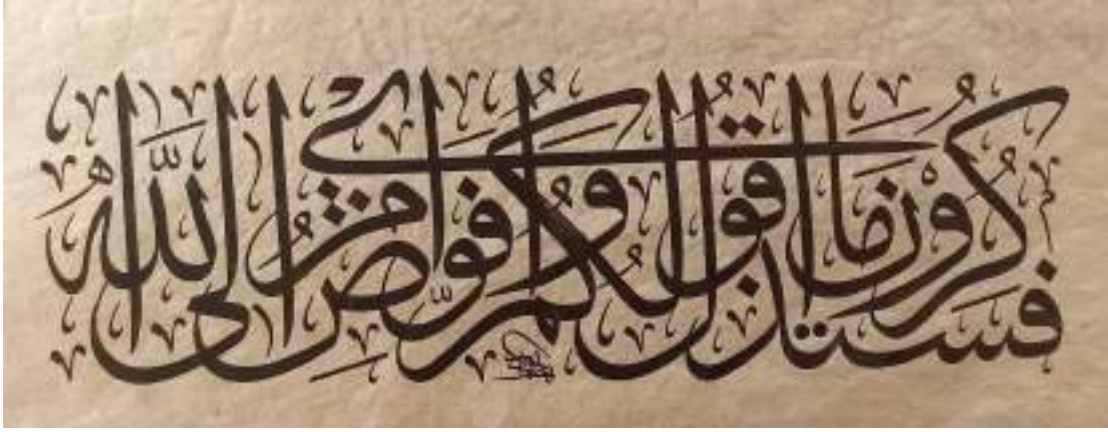 فَسَتَذْكُرُونَ مَا أَقُولُ لَكُمْ وَأُفَوِّضُ أَمْرِي إِلَى اللَّهِ